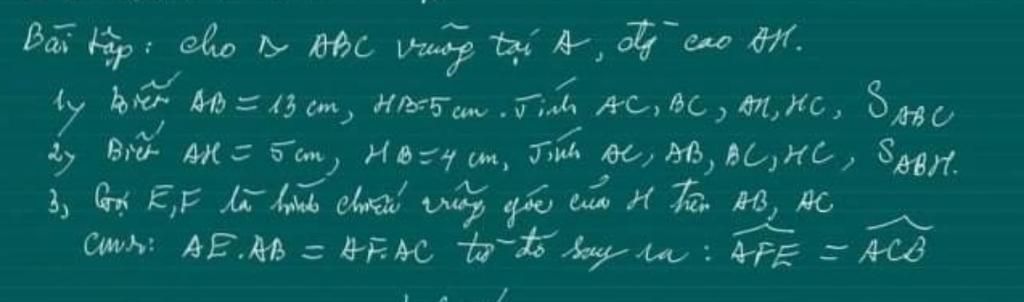 Bài tập: cho Δ ABC vuông tại A, đg cao AH.
1, Biết AB = 13 cm, HB = 5 cm. Tính AC, BC, AH, HC, S_ABC
2, Biết AH = 5 cm, HB = 4 cm, Tính AC, AB, BC, HC, S_ABH.
3, Gọi E,F là hình chiếu vuông góc của H trên AB, AC
cmr: AE.AB = AF.AC từ đó suy ra: \widehat{AFE} = \widehat{ACB}